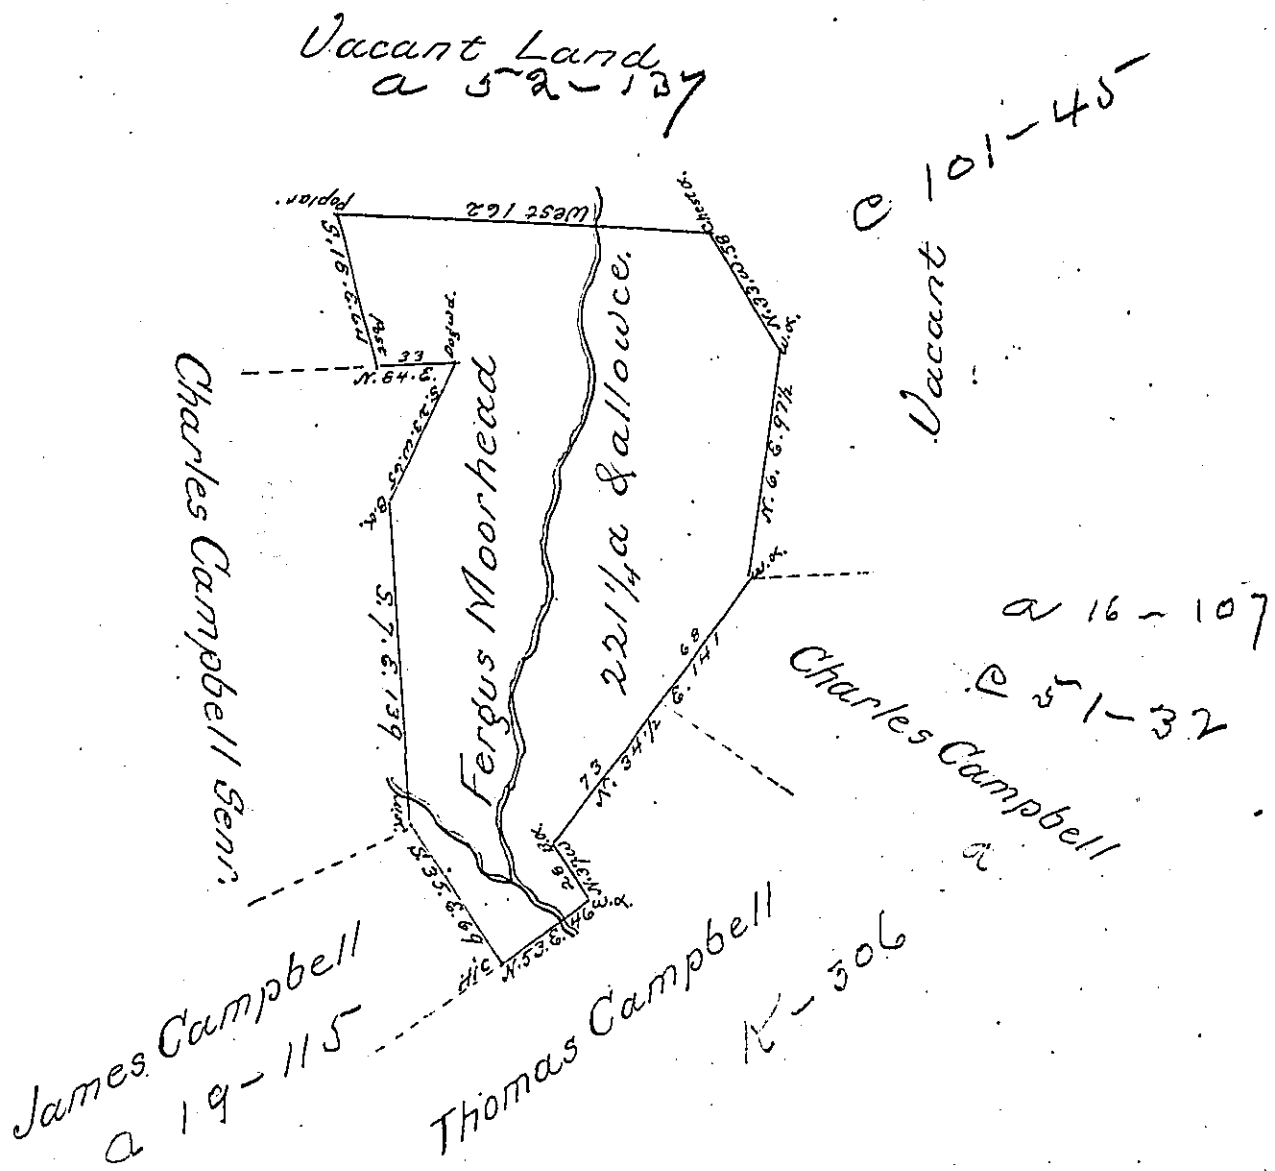 Vacant Land
a 52-137
C 101-45
Vacant
Poplar.
West 162
Chest o.
N.33.W.58
w.o.
S.18.E.64
Post
33
N.84.E.
Dogwd.
S.23.W.65
B.o.
N.9.E.97½
w.o.
Charles Campbell Senr.
Fergus Moorhead
221¼a & allowce.
S.7.E.139
68
N. 34½ E. 141
73
a 16-107
C 51-32
Charles Campbell
a
S.35.E.69
Hic
N.53.E.46
w.o.
N.37W
28
B.o.
James Campbell
a 19-115
Thomas Campbell
K-306